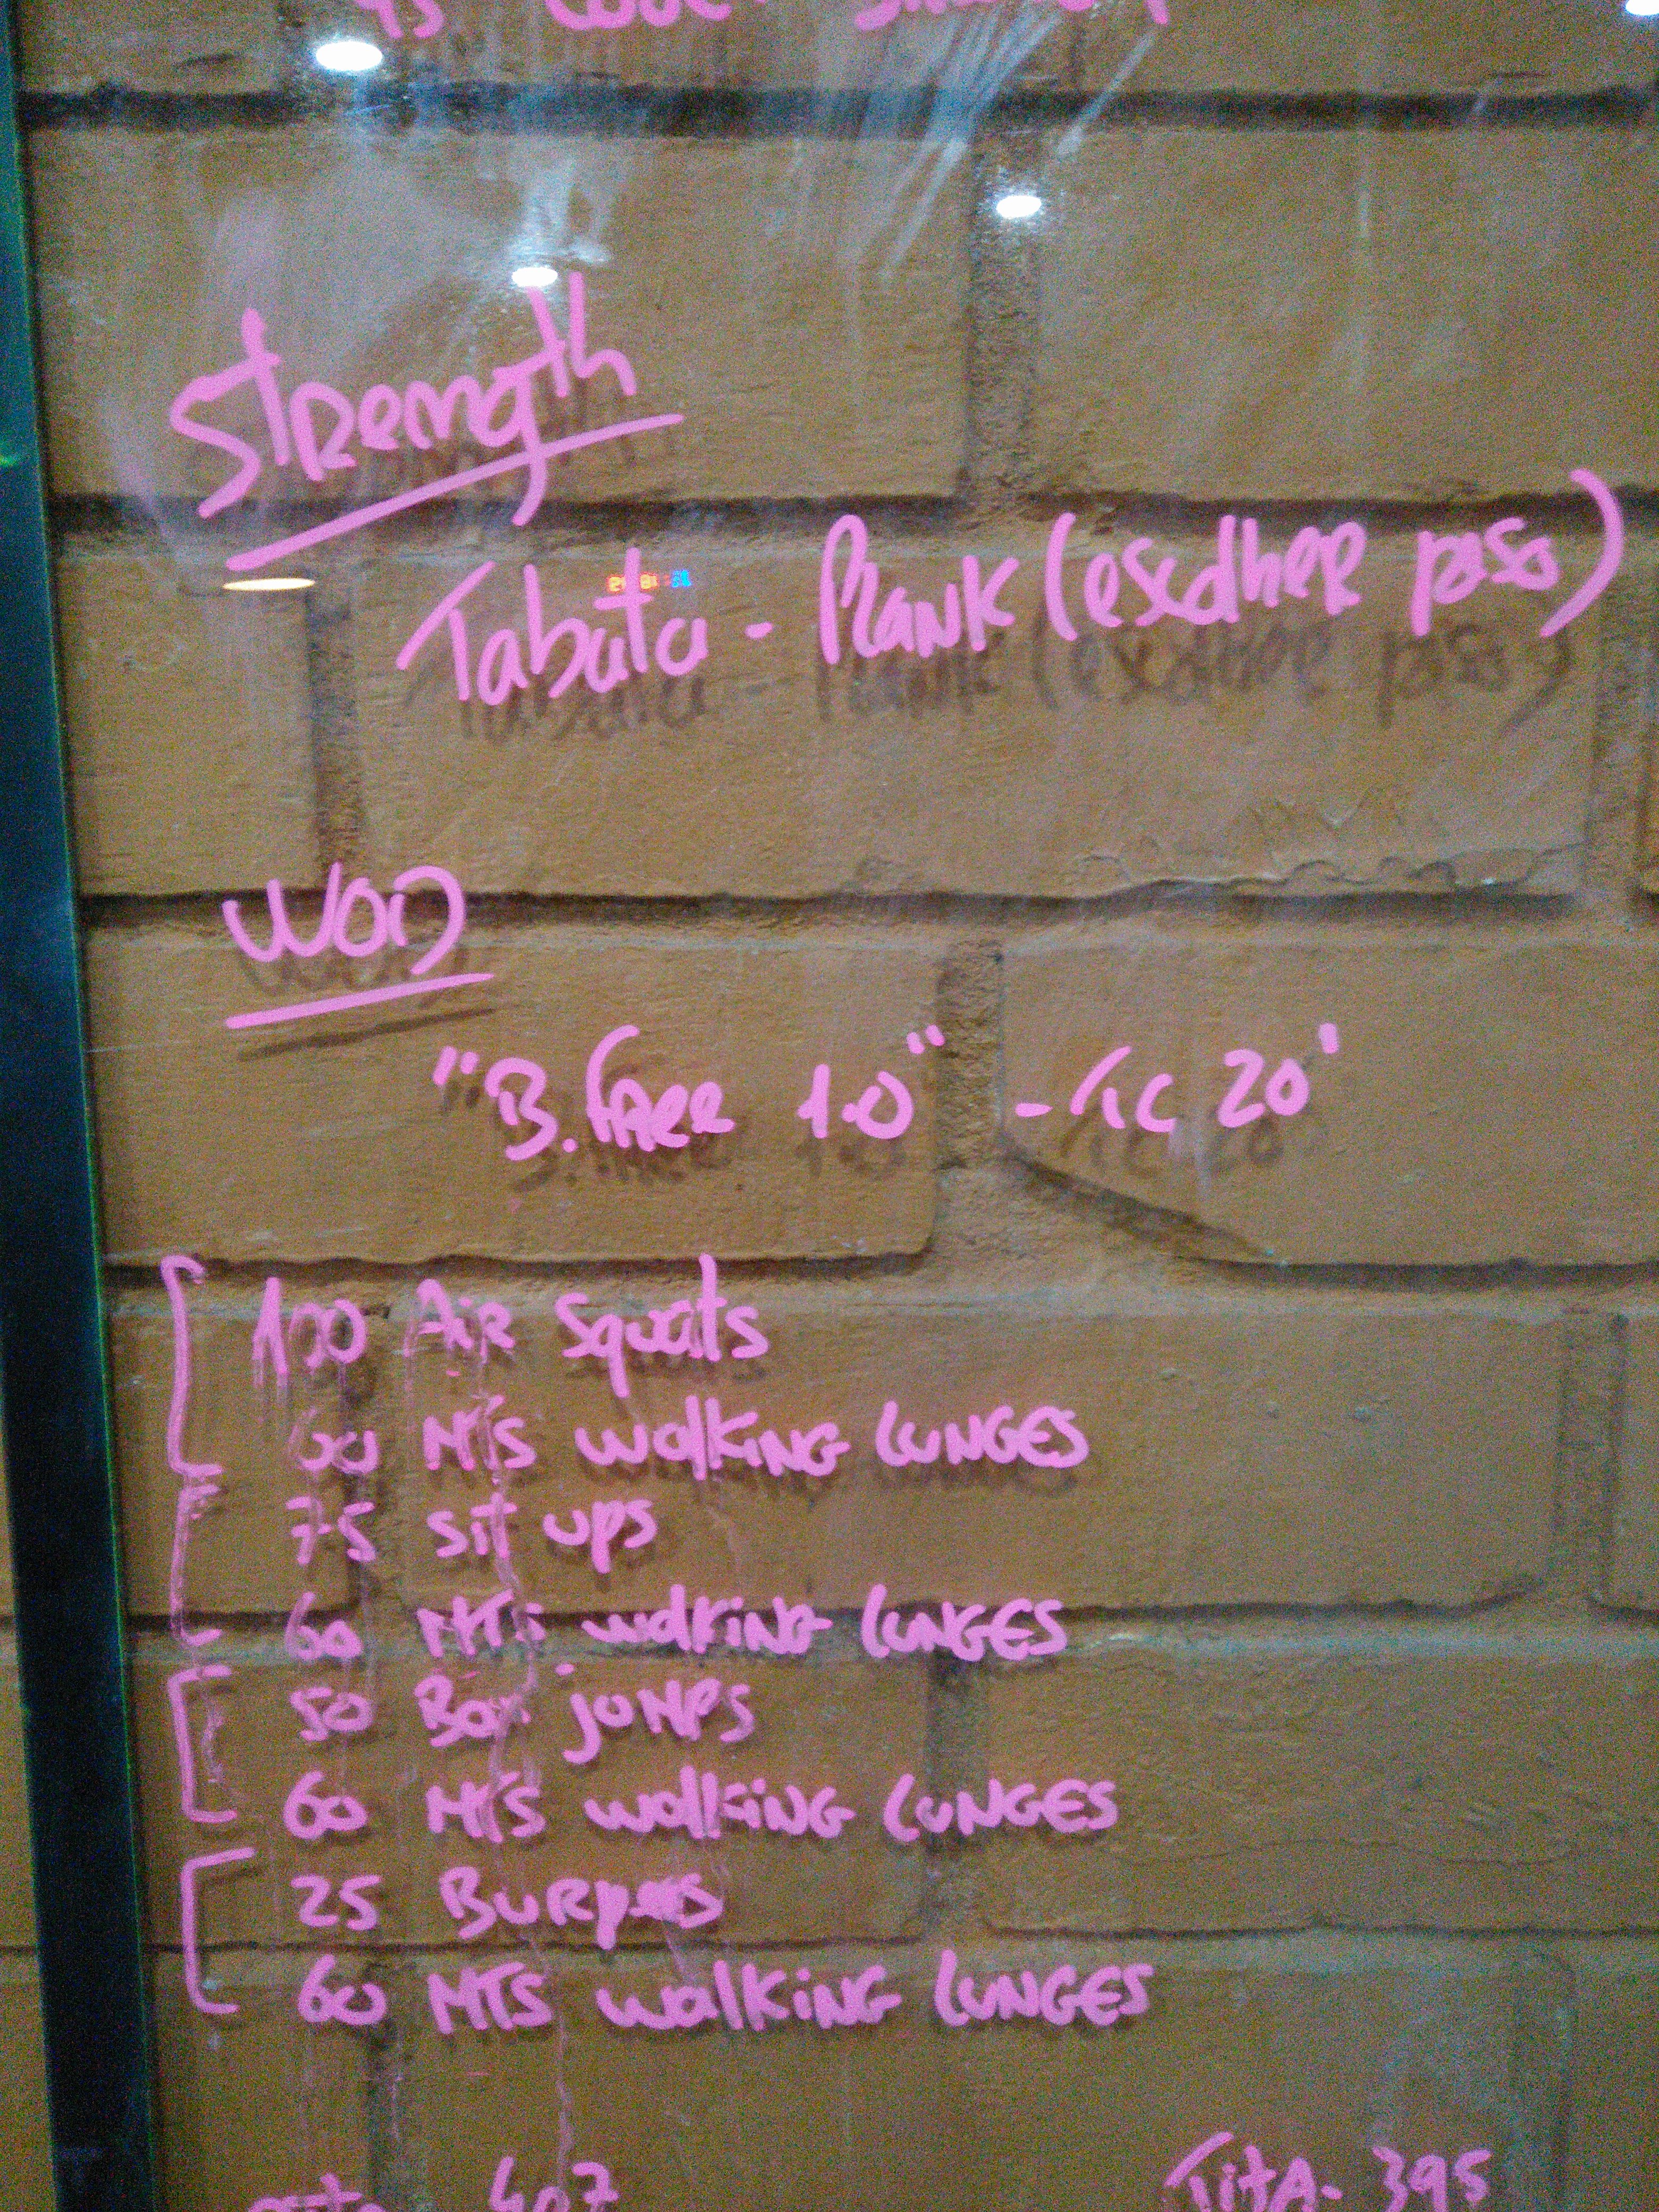 Strength
Tabata - Plank (escolher peso)
WOD
"B. Free 1.0" - TC 20'
100 Air Squats
60 MTS walking LUNGES
75 sit ups
60 MTS walking LUNGES
50 Box jumps
60 MTS walking LUNGES
25 Burpees
60 MTS walking LUNGES
407 TitA - 395